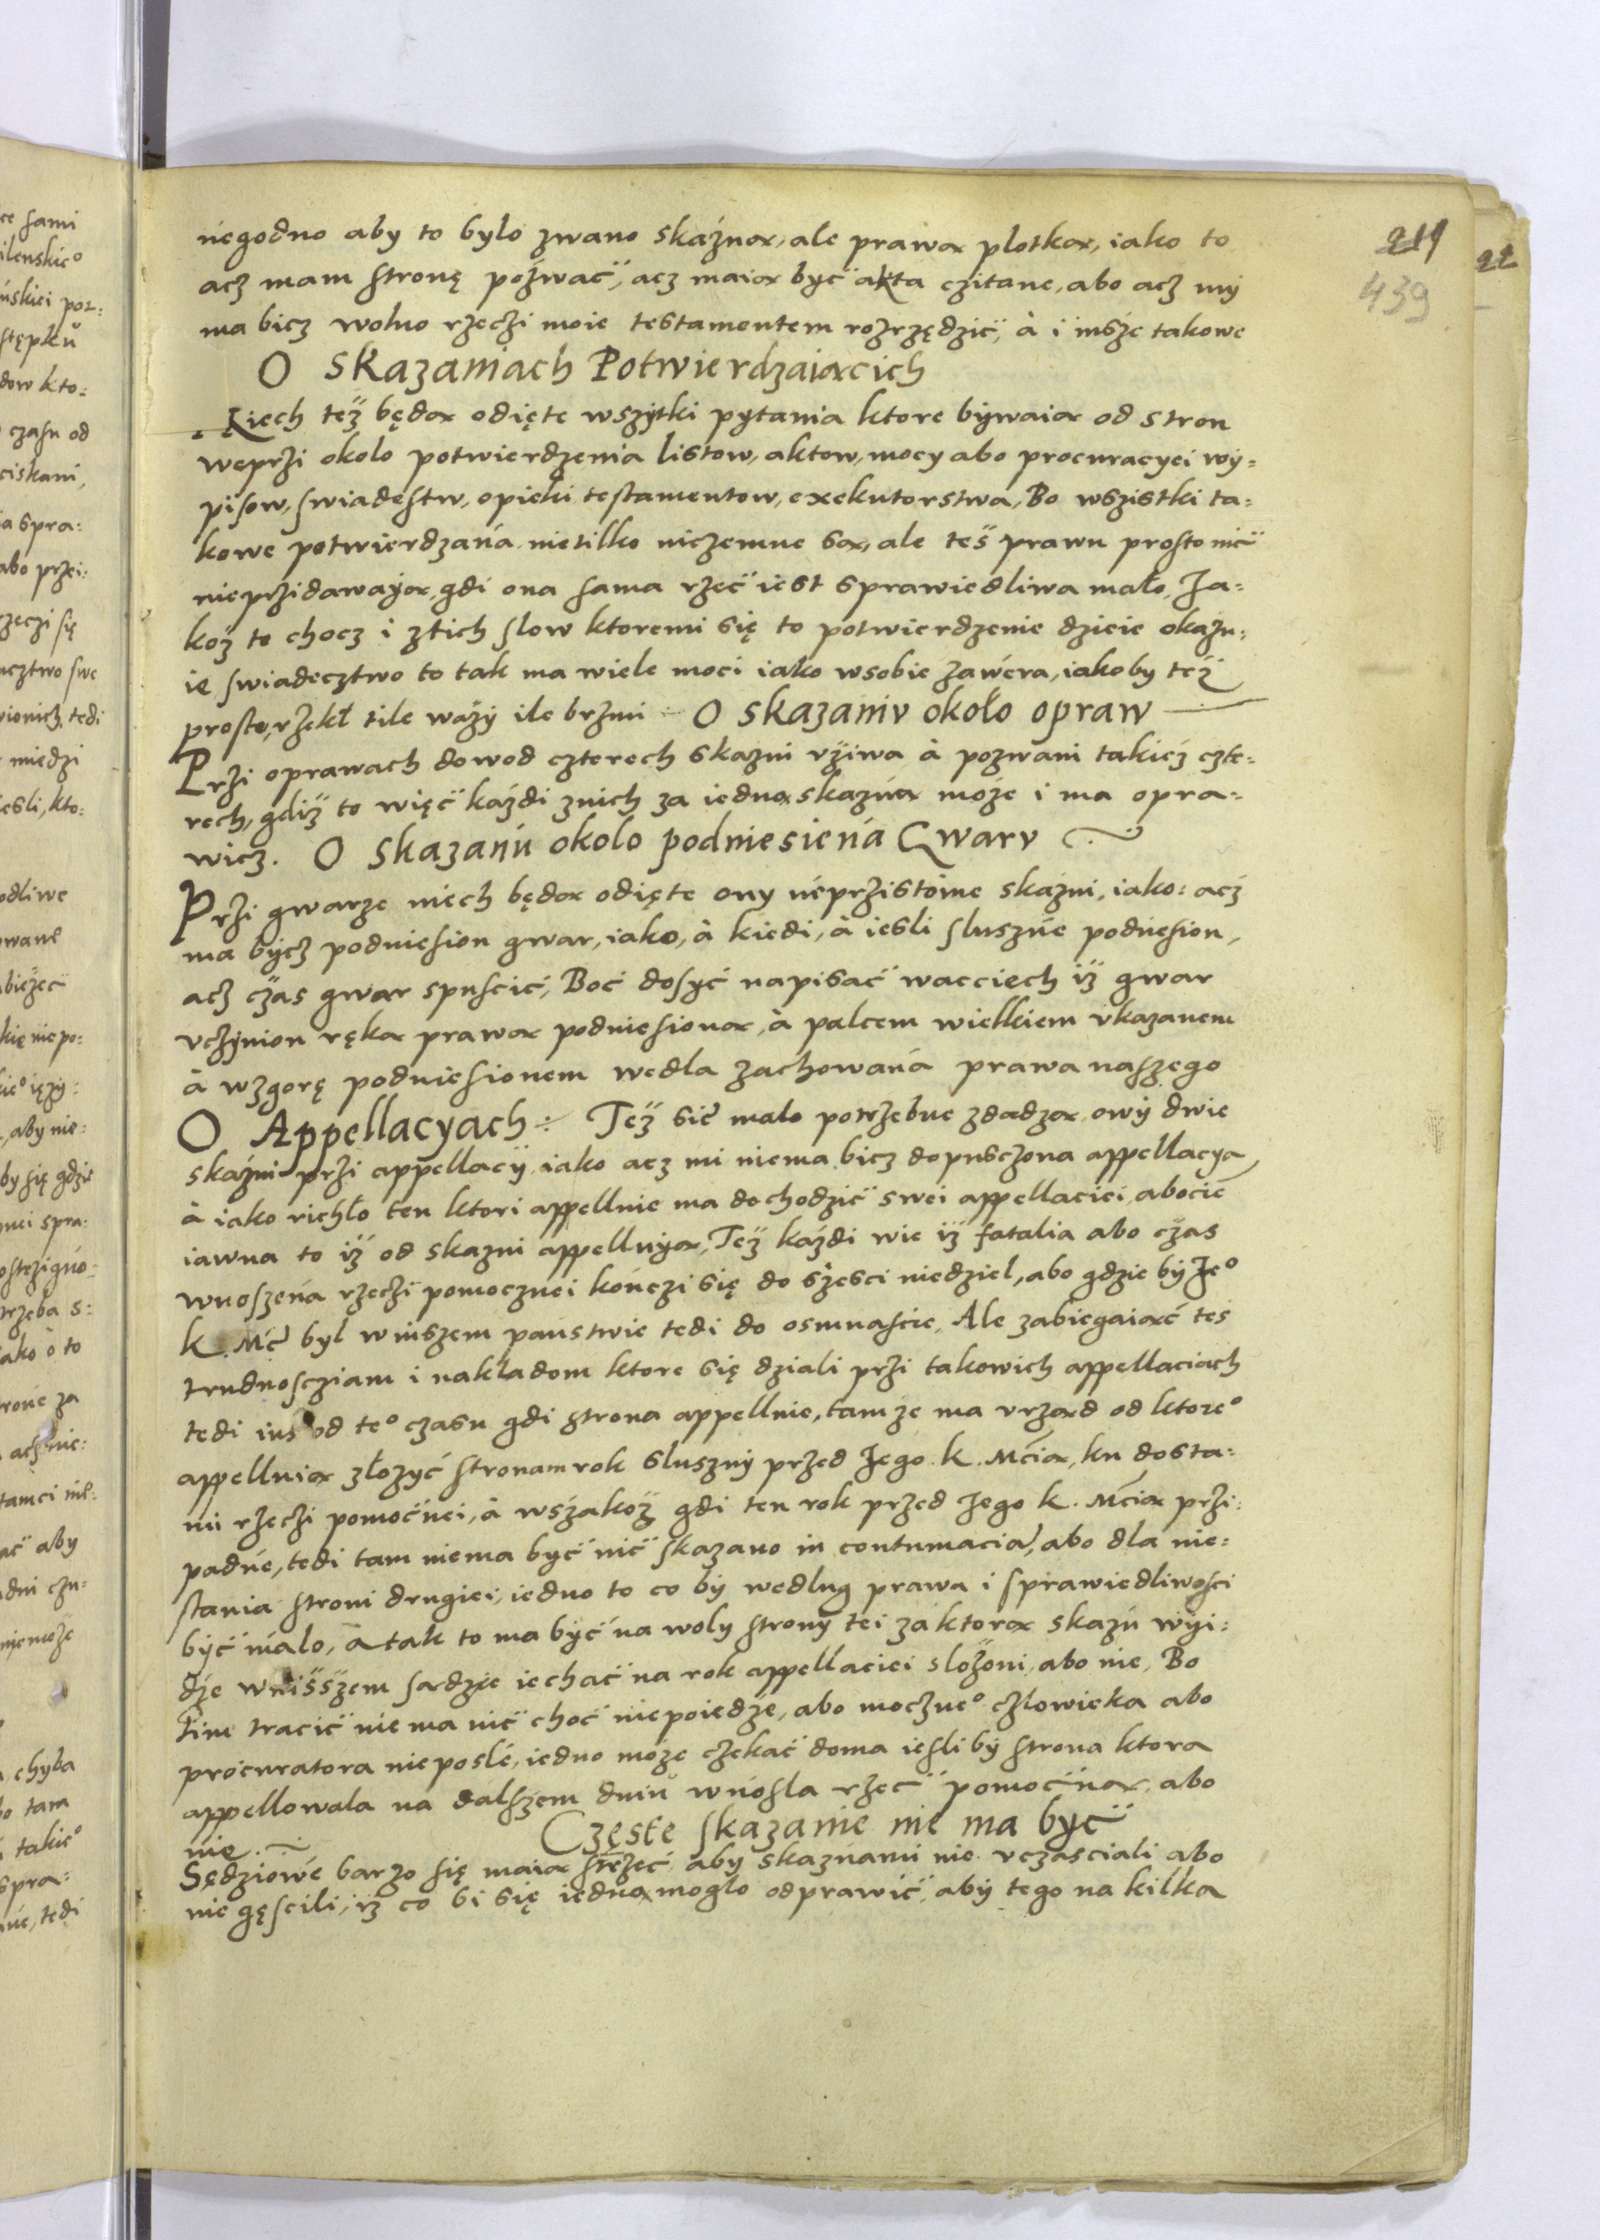 211
439
22
niegodno aby to bylo zwano skaźnią, ale prawą plotką, iako to
acz mam stronę poźwać, acz maią być akta czitane, abo acz my
ma bicz wolno rzeczi moie testamentem rozrzędzić, à i insze takowe
O skazaniach Potwierdzaiącich
Niech też będą odięte wszytki pytania ktore bywaią od stron
weprzi okolo potwierdzenia listow, aktow, mocy abo procuracyei wy=
pisow, swiadestw, opieki testamentow, exekutorstwa, Bo wszistki ta=
kowe potwierdzańa nietilko niczemne są, ale teś prawu prosto nić
nieprzidawaią, gdi ona sama rzeć iest sprawiedliwa mało, Ja=
koż to chocz i ztich slow ktoremi się to potwierdzenie dzieie okazu=
ie swiadecztwo to tak ma wiele moci iako wsobie zawéra, iakoby też
prosto, rzekł tile waży ile brzmi ÷ O skazaniu około opraw
Przi oprawach dowod czterech skazni użiwa à pozwani takież czte=
rech, gdiż to więć każdi znich za iedną skaźńą może i ma opra=
wicz. O skazańu okolo podniesieńa Gwaru
Przi gwarze niech będą odięte ony néprzistoine skaźni, iako: acż
ma bycz podniesion gwar, iako, à kiedi, à iesli sluszńe podńesion,
acz czas gwar spuścić, Boć dosyć napisać wacciech iż gwar
uczynion ręką prawą podniesioną, à palcem wielkiem ukazanem
à wzgorę podniesionem wedla zachowańa prawa naszego
O Appellacyach ÷ Też sie malo potrzebne zdadzą owy dwie
skaźni przi appellacy, iako acz mi niema bicz dopusczona appellacya,
à iako richło ten ktori appelluie ma dochodzić swei appellaciei, abocie
iawna to iż od skazni appelluyą, Też każdi wie iż fatalia abo czas
wnoszeńa rzeczi pomocznei kończi się do sześci niedziel, abo gdzie by Jeº
K. Mć byl winszem państwie tedi do osmnaście, Ale zabiegaiąć tes
trudnościam i nakładom ktore się dziali przi takowich appellaciach
tedi ius od teº czasu gdi strona appelluie, tamże ma urząd od ktoreº
appelluią złożyć stronam rok sluszny przed Jego K. Mćią, ku dosta=
niu rzeczi pomoćnei, à wszakoż gdi ten rok przed Jego K. Mćią przi=
padńe, tedi tam niema być nić skazano in contumacia, abo dla nie=
stania stroni drugiei, iedno to co by wedlug prawa i sprawiedliwości
być mialo, à tak to ma być na woly strony tei za ktorą skaźń wyi=
dże wniższem sądzie iechać na rok appellaciei słożoni, abo nie, Bo
tim tracić nie ma nić choć niepoiedże, abo mocżneº człowieka abo
procuratora nieposlé, iedno może czekać doma iesli by strona ktora
appellowala na dalszem dniu wńosla rzeć pomoćńą, abo
nie. Częste skazanie nie ma być
Sędziowé barzo się maią strzeżeć, aby skaznami nie uczasciali abo
nie gęscili, iż co bi się iedną moglo odprawić, aby tego na kilka